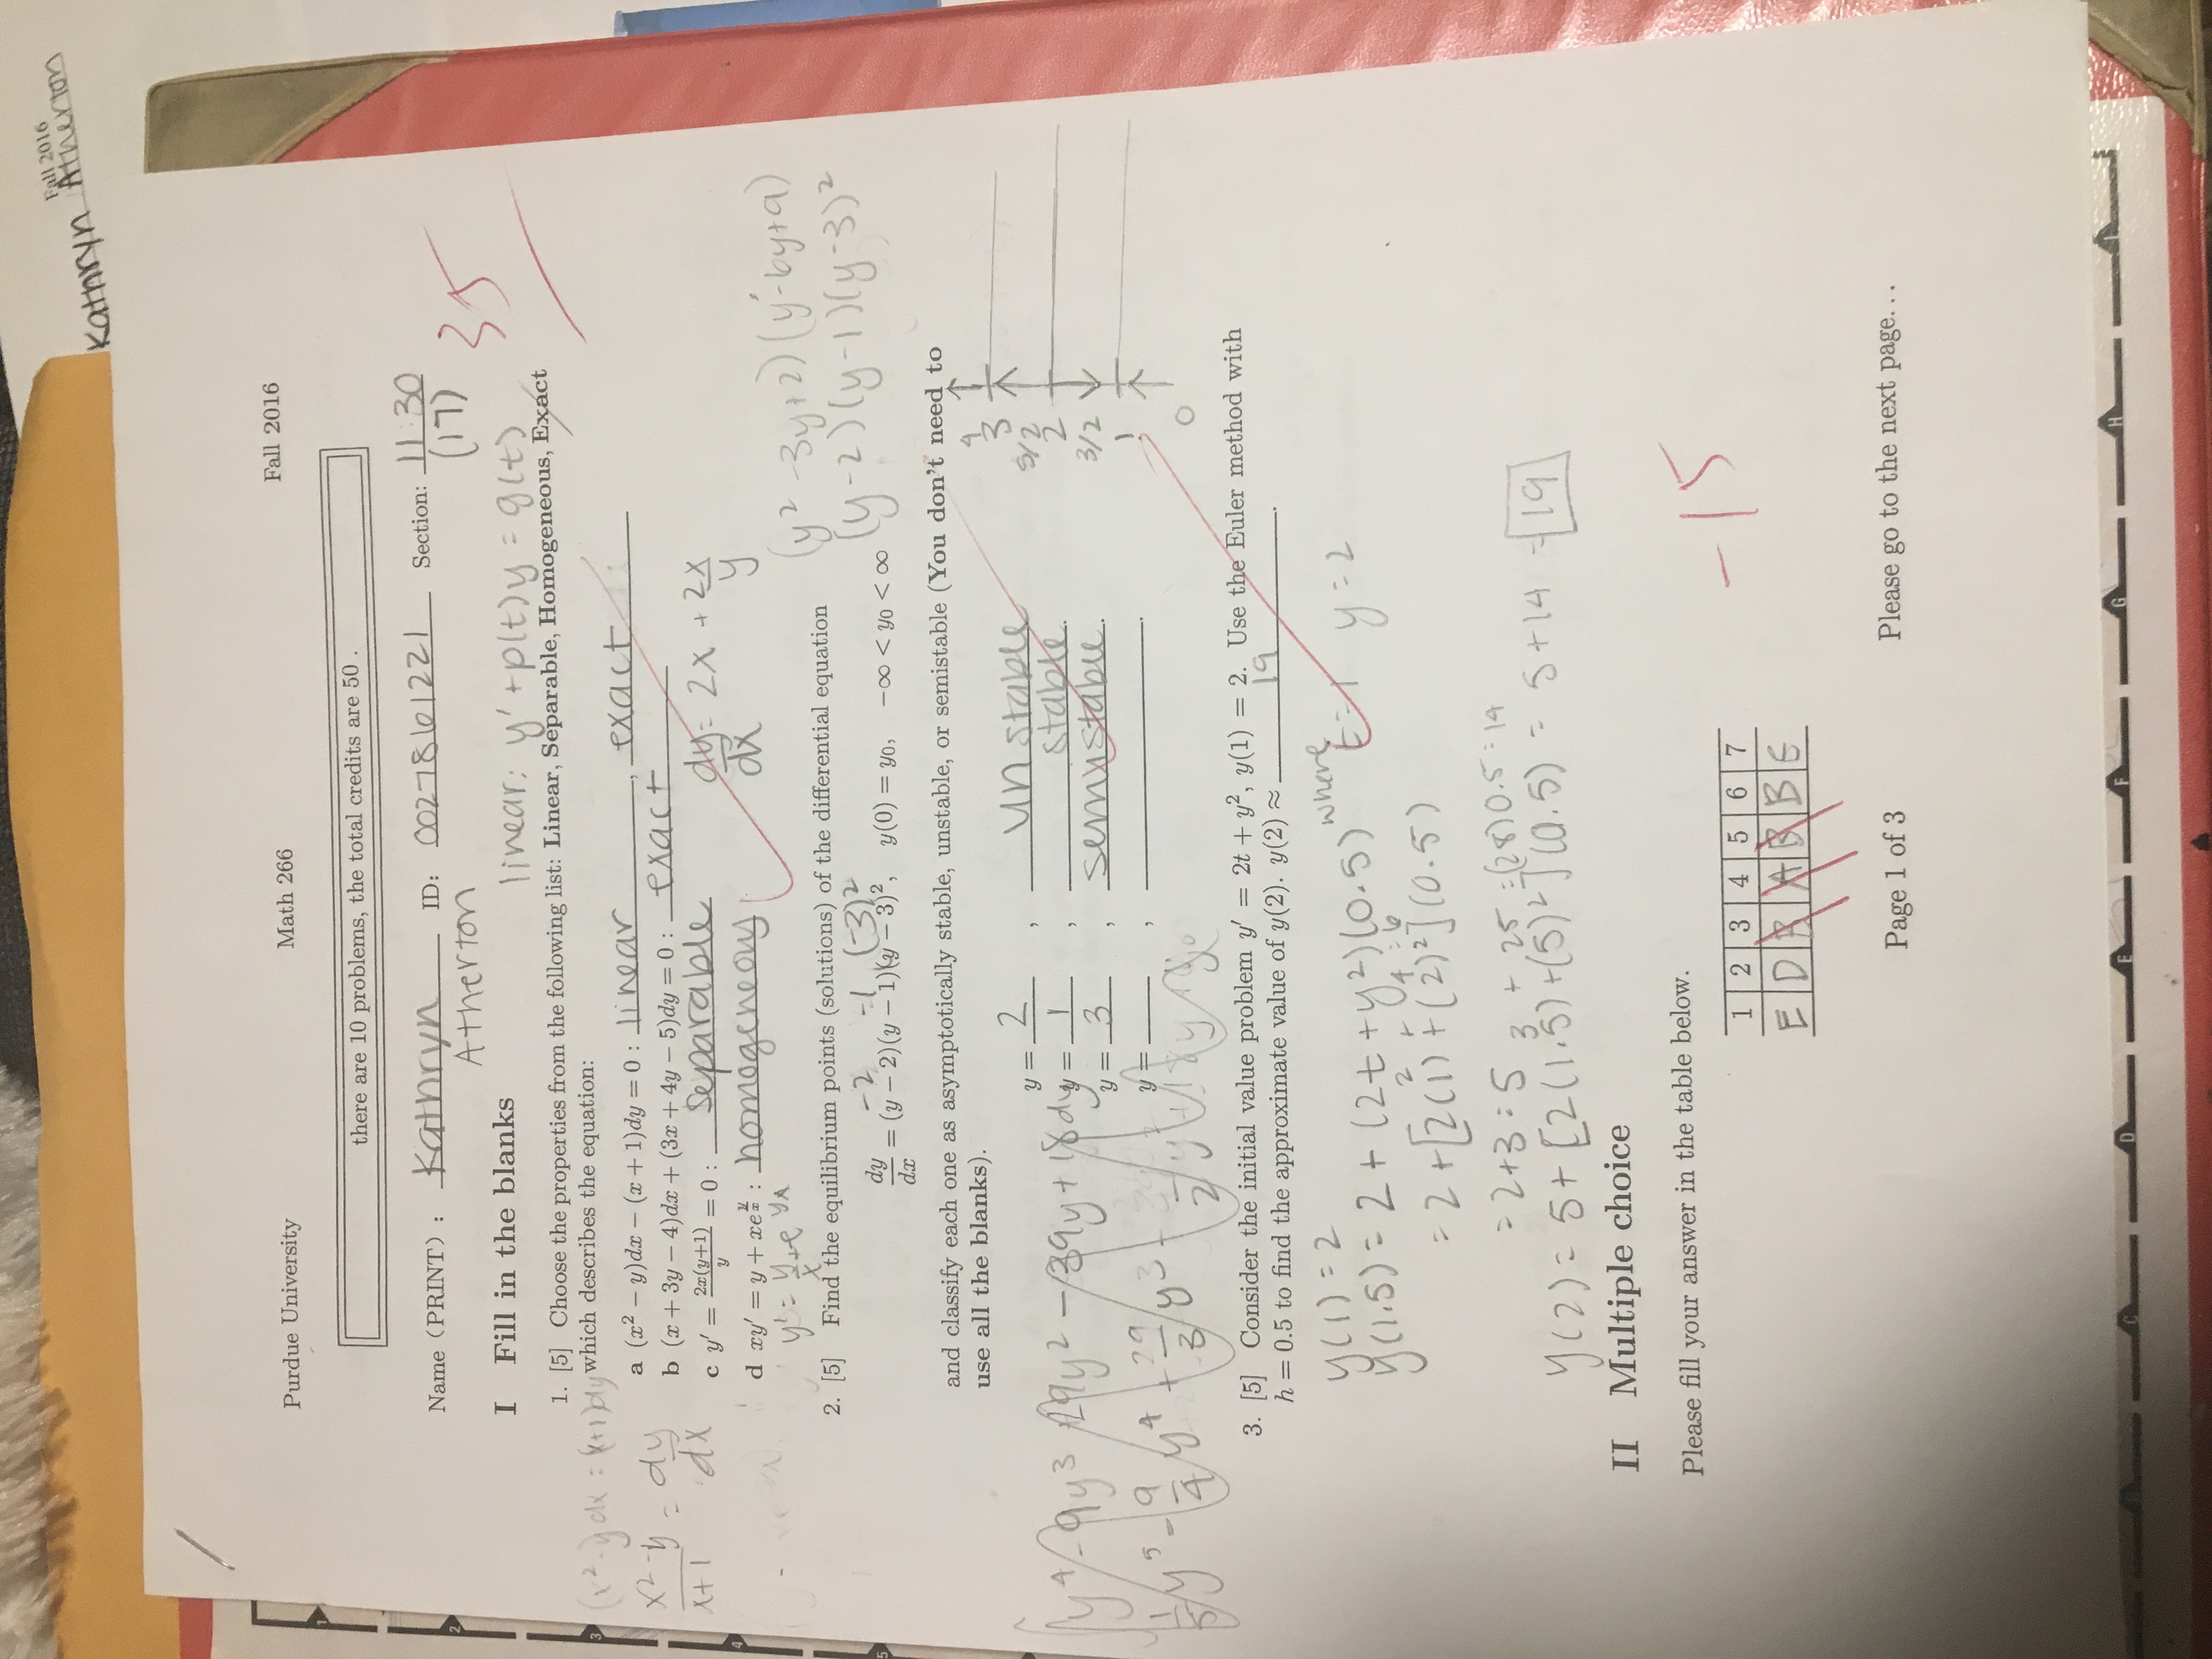 Fall 2016
Kathryn Atherton
Purdue University Math 266 Fall 2016
there are 10 problems, the total credits are 50 .
Name (PRINT) : Kathryn Atherton ID: 0027861221 Section: 11:30 (17)
35
I Fill in the blanks
linear: y' + p(t)y = g(t)
1. [5] Choose the properties from the following list: Linear, Separable, Homogeneous, Exact
which describes the equation:
(x² - y)dx = (x+1)dy
a (x² − y)dx − (x + 1)dy = 0 : linear , exact
x² - y / x+1 = dy/dx
b (x + 3y − 4)dx + (3x + 4y − 5)dy = 0 : exact
c y′ = 2x(y+1)/y = 0 : separable
dy/dx = 2x + 2x/y
d xy′ = y + xe^(y/x) : homogeneous
y' = y/x + e^(y/x)
(y² - 3y + 2)(y² - 6y + 9)
2. [5] Find the equilibrium points (solutions) of the differential equation
(y-2)(y-1)(y-3)²
-2 -1 (-3)²
dy/dx = (y − 2)(y − 1)(y − 3)², y(0) = y₀, −∞ < y₀ < ∞
and classify each one as asymptotically stable, unstable, or semistable (You don't need to
use all the blanks).
4
3
5/2
2
3/2
1
0
y = 2 , unstable
y = 1 , stable.
y = 3 , semistable.
y = , .
∫ y⁴ - 9y³ + 29y² - 39y + 18 dy
1/5 y⁵ - 9/4 y⁴ + 29/3 y³ -
3. [5] Consider the initial value problem y′ = 2t + y², y(1) = 2. Use the Euler method with
h = 0.5 to find the approximate value of y(2). y(2) ≈ 19 .
y(1) = 2
y(1.5) = 2 + (2t + y²)(0.5) where t = 1 y = 2
2 + 4 = 6
= 2 + [2(1) + (2)²](0.5)
= 2 + 3 = 5
3 + 25 = (28)0.5 = 14
y(2) = 5 + [2(1.5) + (5)²](0.5) = 5 + 14 = 19
II Multiple choice
Please fill your answer in the table below.
-15
1 2 3 4 5 6 7
E D B A B B E
Page 1 of 3 Please go to the next page...
1
2
3
4
5
C D E F G H I